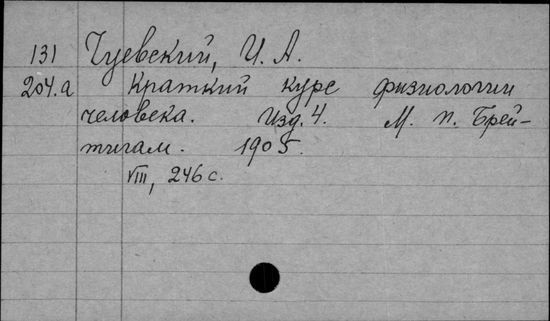 131 Чуевский, И. А.
204.а Краткий курс физиологии
человека. Изд. 4. М. п. Брей-
тигам. 1905.
VIII, 246 с.